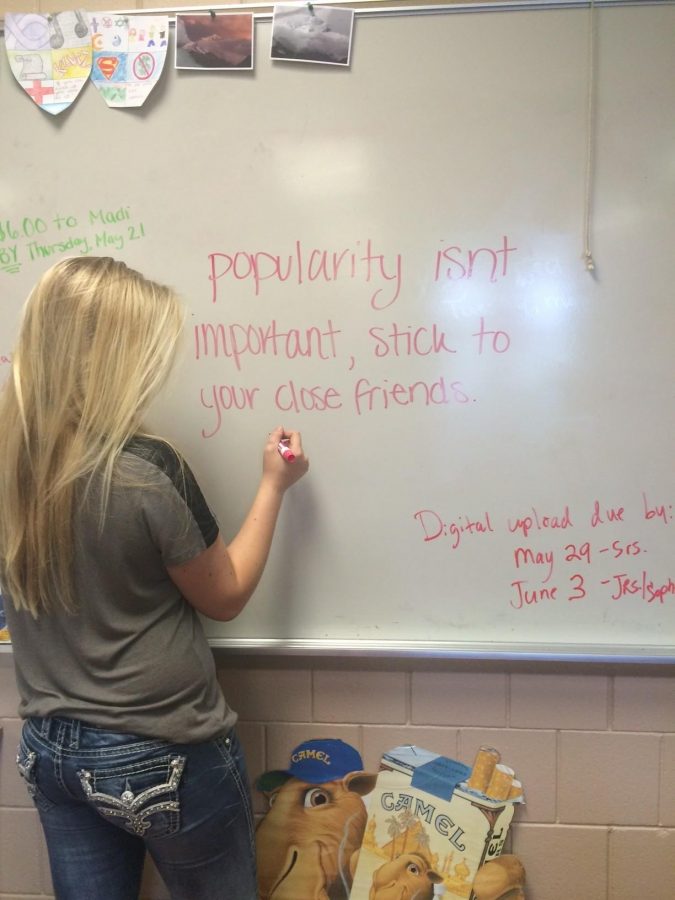 $6.00 to Madi
BY Thursday, May 21
popularity isnt
important, stick to
your close friends.
Digital upload due by:
May 29 - Srs.
June 3 - Jrs/Soph
CAMEL
CAMEL
CAMEL